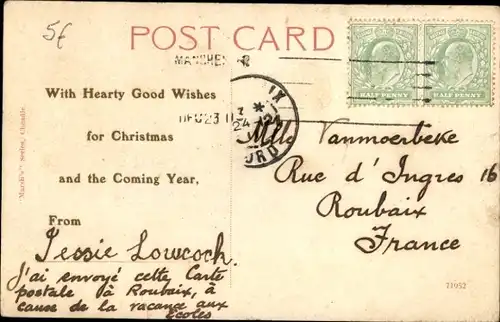 5f
POST CARD
HALF PENNY
HALF PENNY
With Hearty Good Wishes
for Christmas
and the Coming Year,
From
Jessie Lowcock.
J'ai envoyé cette Carte
postale à Roubaix, à
cause de la vacance aux
Écoles
Mlle Vanmoerbeke
Rue d'Ingres 16
Roubaix
France
"Marsh's" series, Cheadle.
71952